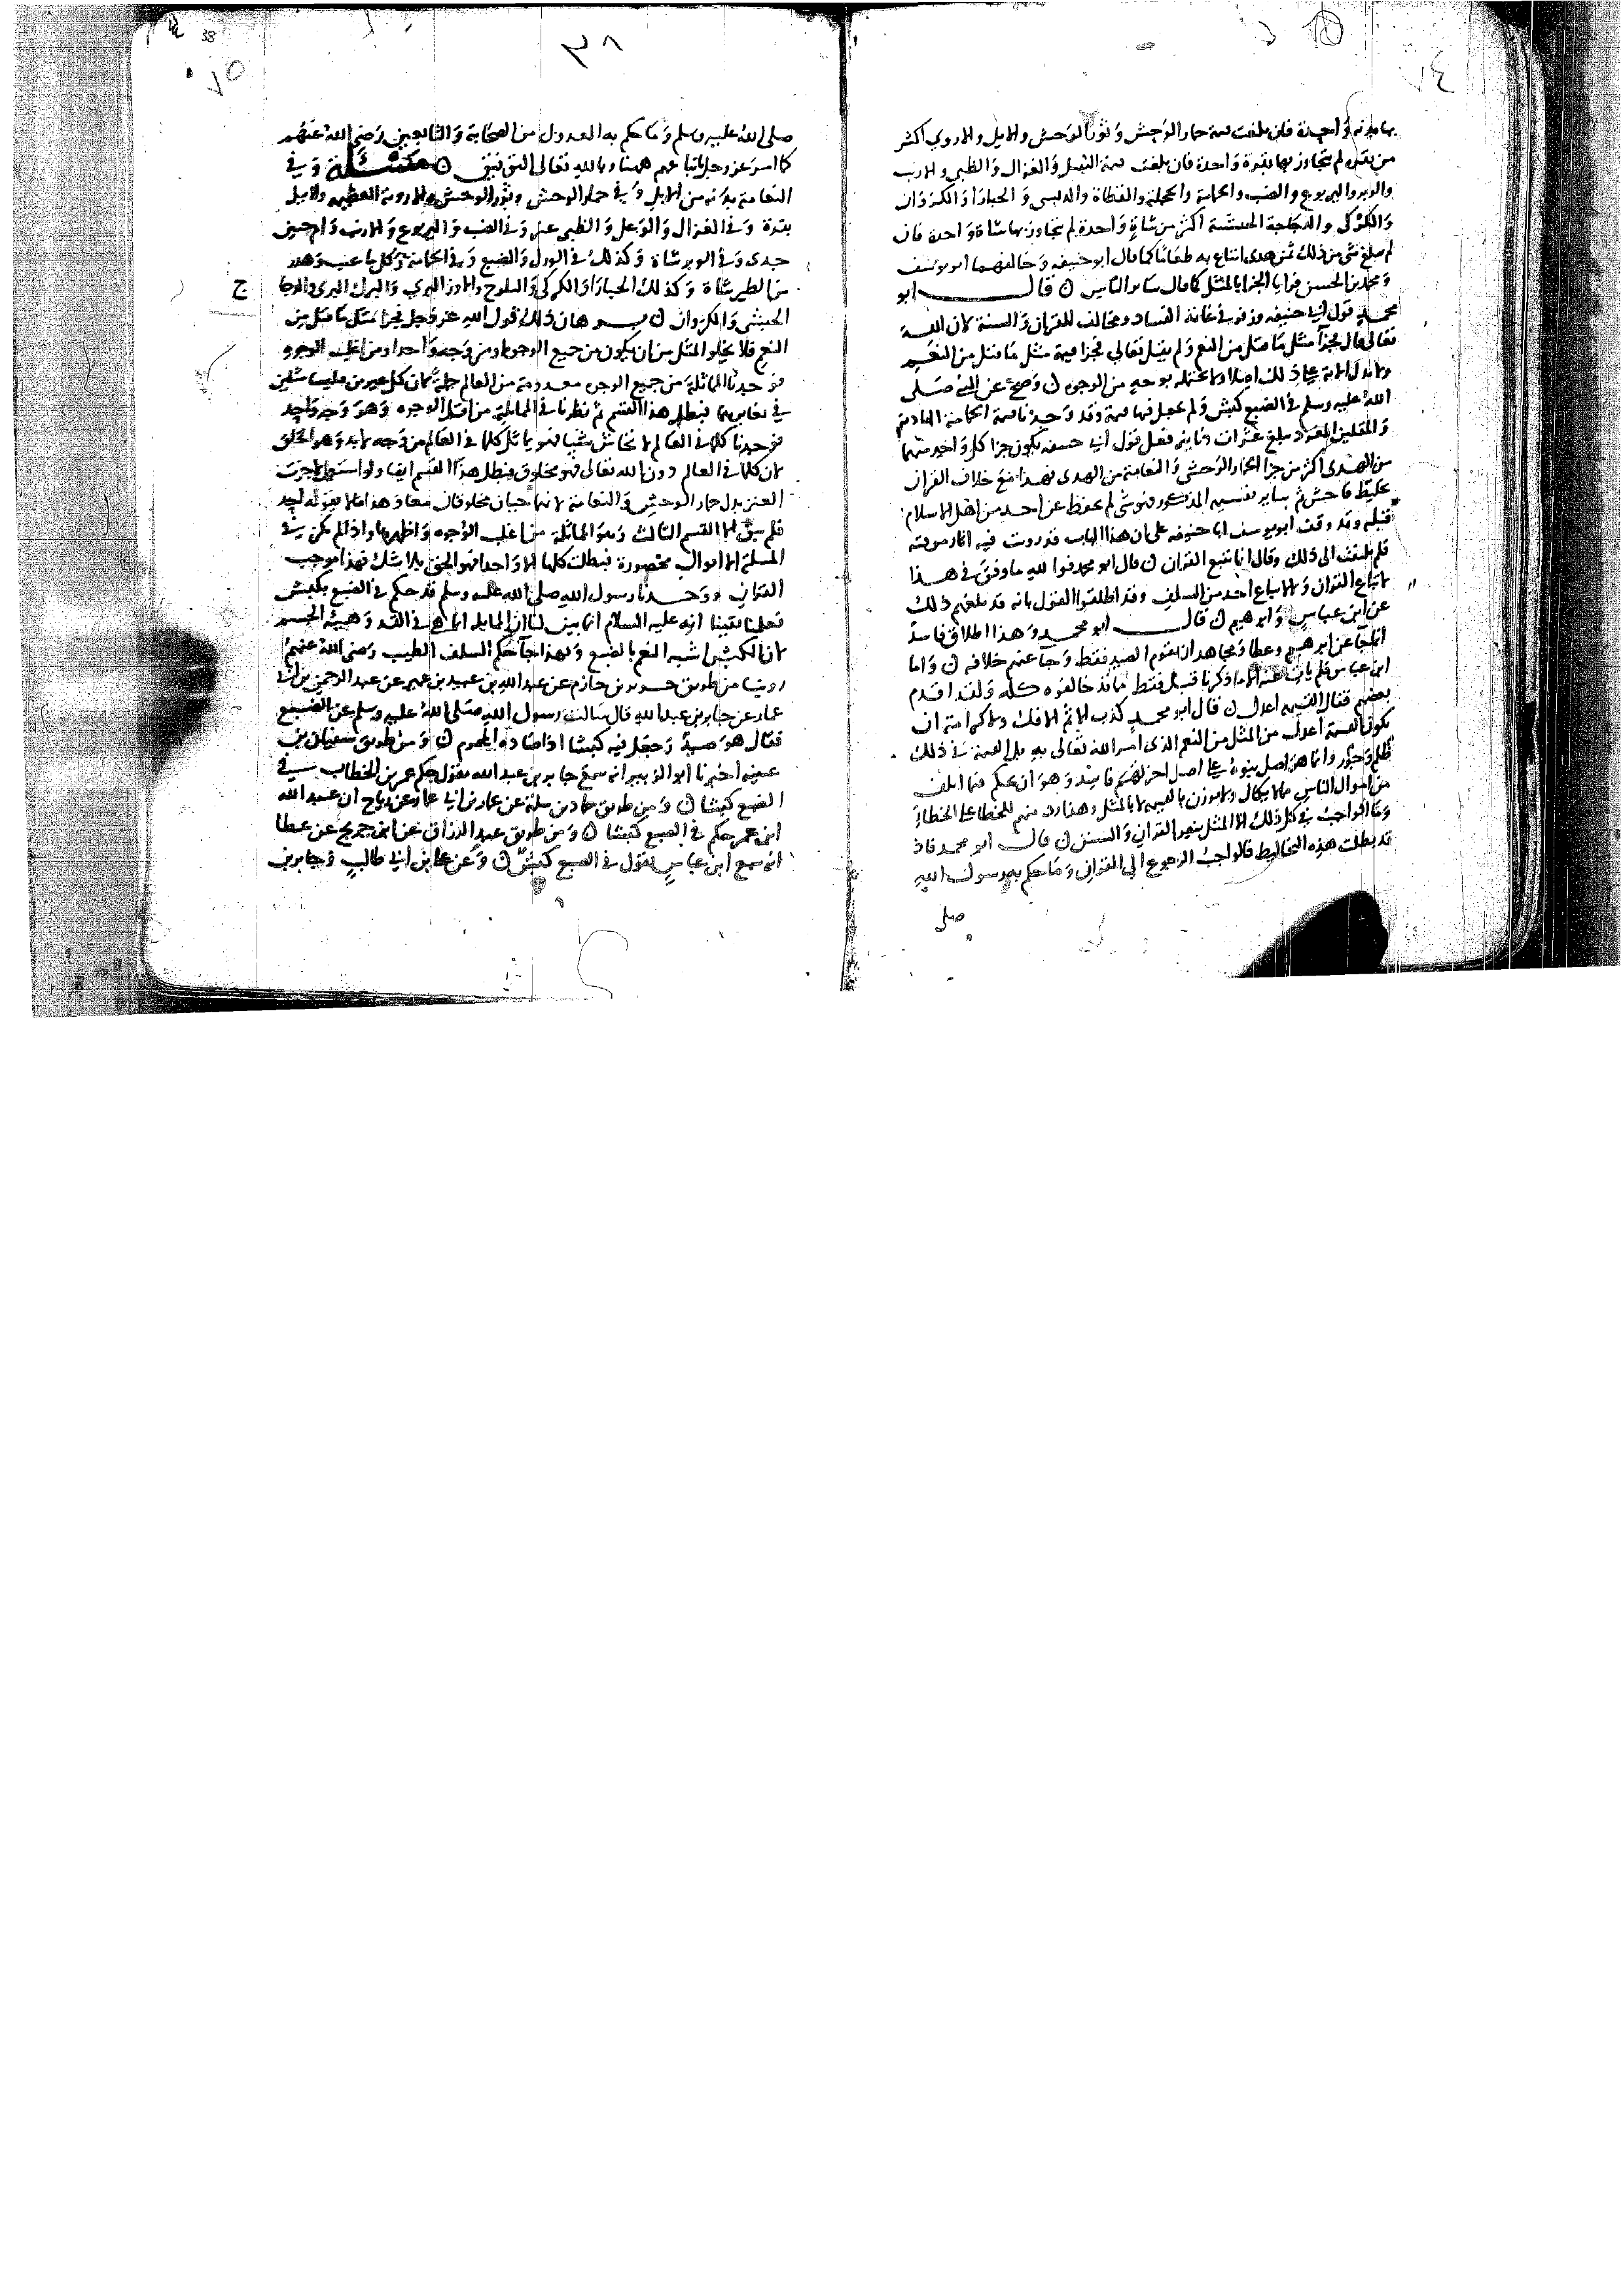 بها بدنة واحدة فان بلغت قيمة حمار الوحش وثور الوحش والايل والاروي اكثر
من بقرة لم يتجاوز بها بقرة واحدة فان بلغت قيمة الثيتل والغزال والظبي والارنب
والوبر واليربوع والضب والحمامة والحجلة والقطاة والدبسي والحبارا والكروان
والكركي والدجاجة الحبشية اكثر من شاة واحدة لم يتجاوز بها شاة واحدة فان
لم يبلغ شي من ذلك ثمن هدي ابتاع به طعاما كما قال ابو حنيفة وخالفهما ابو يوسف
ومحمد بن الحسن فرايا الجزا بالمثل كما قال ساير الناس ن قال ابو
محمد قول ابي حنيفة وزفر في غاية الفساد ومخالف للقران والسنة لان الله
تعالى قال فجزا مثل ما قتل من النعم ولم يقل تعالى فجزا قيمة مثل ما قتل من النعم
ولا تدل الاية على ذلك اصلا ولا تحتمله بوجه من الوجوه ن وصح عن النبي صلى
الله عليه وسلم في الضبع كبش ولم يجعل فيها قيمة وقد وجدنا قيمة الحمامة الهادية
من الهدي اكثر من جزا الحمار الوحشي والنعامة من الهدي فهذا مع خلاف القران
تخليط فاحش ثم ساير تقسيمه المذكور فهو شي لم يحفظ عن احد من اهل الاسلام
قبله وقد وقف ابو يوسف ابا حنيفة على ان هذا الباب قد رويت فيه اثار
فلم يلتفت الى ذلك وقال انا نتبع القران ن قال ابو محمد فوا لله ما وفق في هذا
لاتباع القران ولا لاتباع احد من السلف وقد اطلقوا القول بانه قد بلغهم ذلك
عن ابن عباس وابرهيم ن قال ابو محمد وهذا اطلاق فاسد
انما جا عن ابرهيم وعطا ومجاهد ان يقوم الصيد فقط وجا عنهم خلافه ن واما
ابن عباس فلم يات عنه الا ما ذكرنا قبل فقط مما قد خالفوه كله ولقد اقدم
بعضهم فقال القيمة اعدل ن قال ابو محمد كذب الاثم الافك ولا كرامة ان
تكون القيمة اعدل من المثل من النعم الذي امر الله تعالى به بل القيمة في ذلك
ظلم وجور وانما هو اصل بنوه على اصل اخر لهم فاسد وهو ان يحكم فيما اتلف
من اموال الناس مما لا يكال ولا يوزن بالقيمة لا بالمثل وهذا رد منهم للخطا على الخطا
وما الواجب في كل ذلك الا المثل بنص القران والسنن ن قال ابو محمد فاذ
قد بطلت هذه التخاليط فالواجب الرجوع الى القران وما حكم به رسول الله
صلى
٣٨
38
٧٥
صلى الله عليه وسلم وما حكم به العدول من الصحابة والتابعين رضي الله عنهم
كما امر عز وجل باتباعهم ههنا وبالله تعالى التوفيق ن مسئلة وفي
النعامة بدنة من الابل وفي حمار الوحش وثور الوحش والاروية العظيمة والايل
بقرة وفي الغزال والوعل والظبي عنز وفي الضب واليربوع والارنب وام حبين
جدي وفي الوبر شاة وكذلك في الورل والضبع وفي الحمامة وكل ما عب وهدر
من الطير شاة وكذلك الحبارا والكركي والبلوج والاوز البري والبرك البري والدجا
ج
الحبشي والكروان ن برهان ذلك قول الله عز وجل فجزا مثل ما قتل من
النعم فلا يخلو المثل من ان يكون من جميع الوجوه او من وجه واحد او من اغلب الوجوه
فوجدنا المماثلة من جميع الوجوه معدومة من العالم جملة لان كل غيرين فليسا مثلين
في تغايرهما فبطل هذا القسم ثم نظرنا في المماثلة من اقل الوجوه وهو وجه واحد
فوجدنا كل ما في العالم لا تحاش شيا فهو يماثل كل ما في العالم من وجه لا بد وهو الخلق
لان كل ما في العالم دون الله تعالى فهو مخلوق فبطل هذا القسم ايضا ولو استعمل لاجزت
العنز بدل حمار الوحش والنعامة لانهما حيان مخلوقان معا وهذا ما لا يقوله احد
فلم يبق الا القسم الثالث وهو المماثلة من اغلب الوجوه واظهرها واذ لم يكن في
المسلة الا اقوال محصورة فبطلت كلها الا واحدا فهو الحق بلا شك فهذا موجب
القران ووجدنا رسول الله صلى الله عليه وسلم قد حكم في الضبع بكبش
فعلمنا يقينا انه عليه السلام انما بين لنا ان المماثلة انما هي في القد وهيئة الجسم
لان الكبش اشبه النعم بالضبع وبهذا جا حكم السلف الطيب رضي الله عنهم
روينا من طريق جرير بن حازم عن عبد الله بن عبيد بن عمير عن عبد الرحمن بن ابي
عمار عن جابر بن عبد الله قال سالت رسول الله صلى الله عليه وسلم عن الضبع
فقال هو صيد وجعل فيه كبشا اذا صاده المحرم ن ومن طريق سفيان بن
عيينه اخبرنا ابو الزبير انه سمع جابر بن عبد الله يقول حكم عمر بن الخطاب في
الضبع كبشا ن ومن طريق حماد بن سلمة عن عمار بن ابي عمار عن رباح ان عبد الله
ابن عمر حكم في الضبع كبشا ن ومن طريق عبد الرزاق عن ابن جريج عن عطا
انه سمع ابن عباس يقول في الضبع كبش ن وعن علي بن ابي طالب وجابر بن